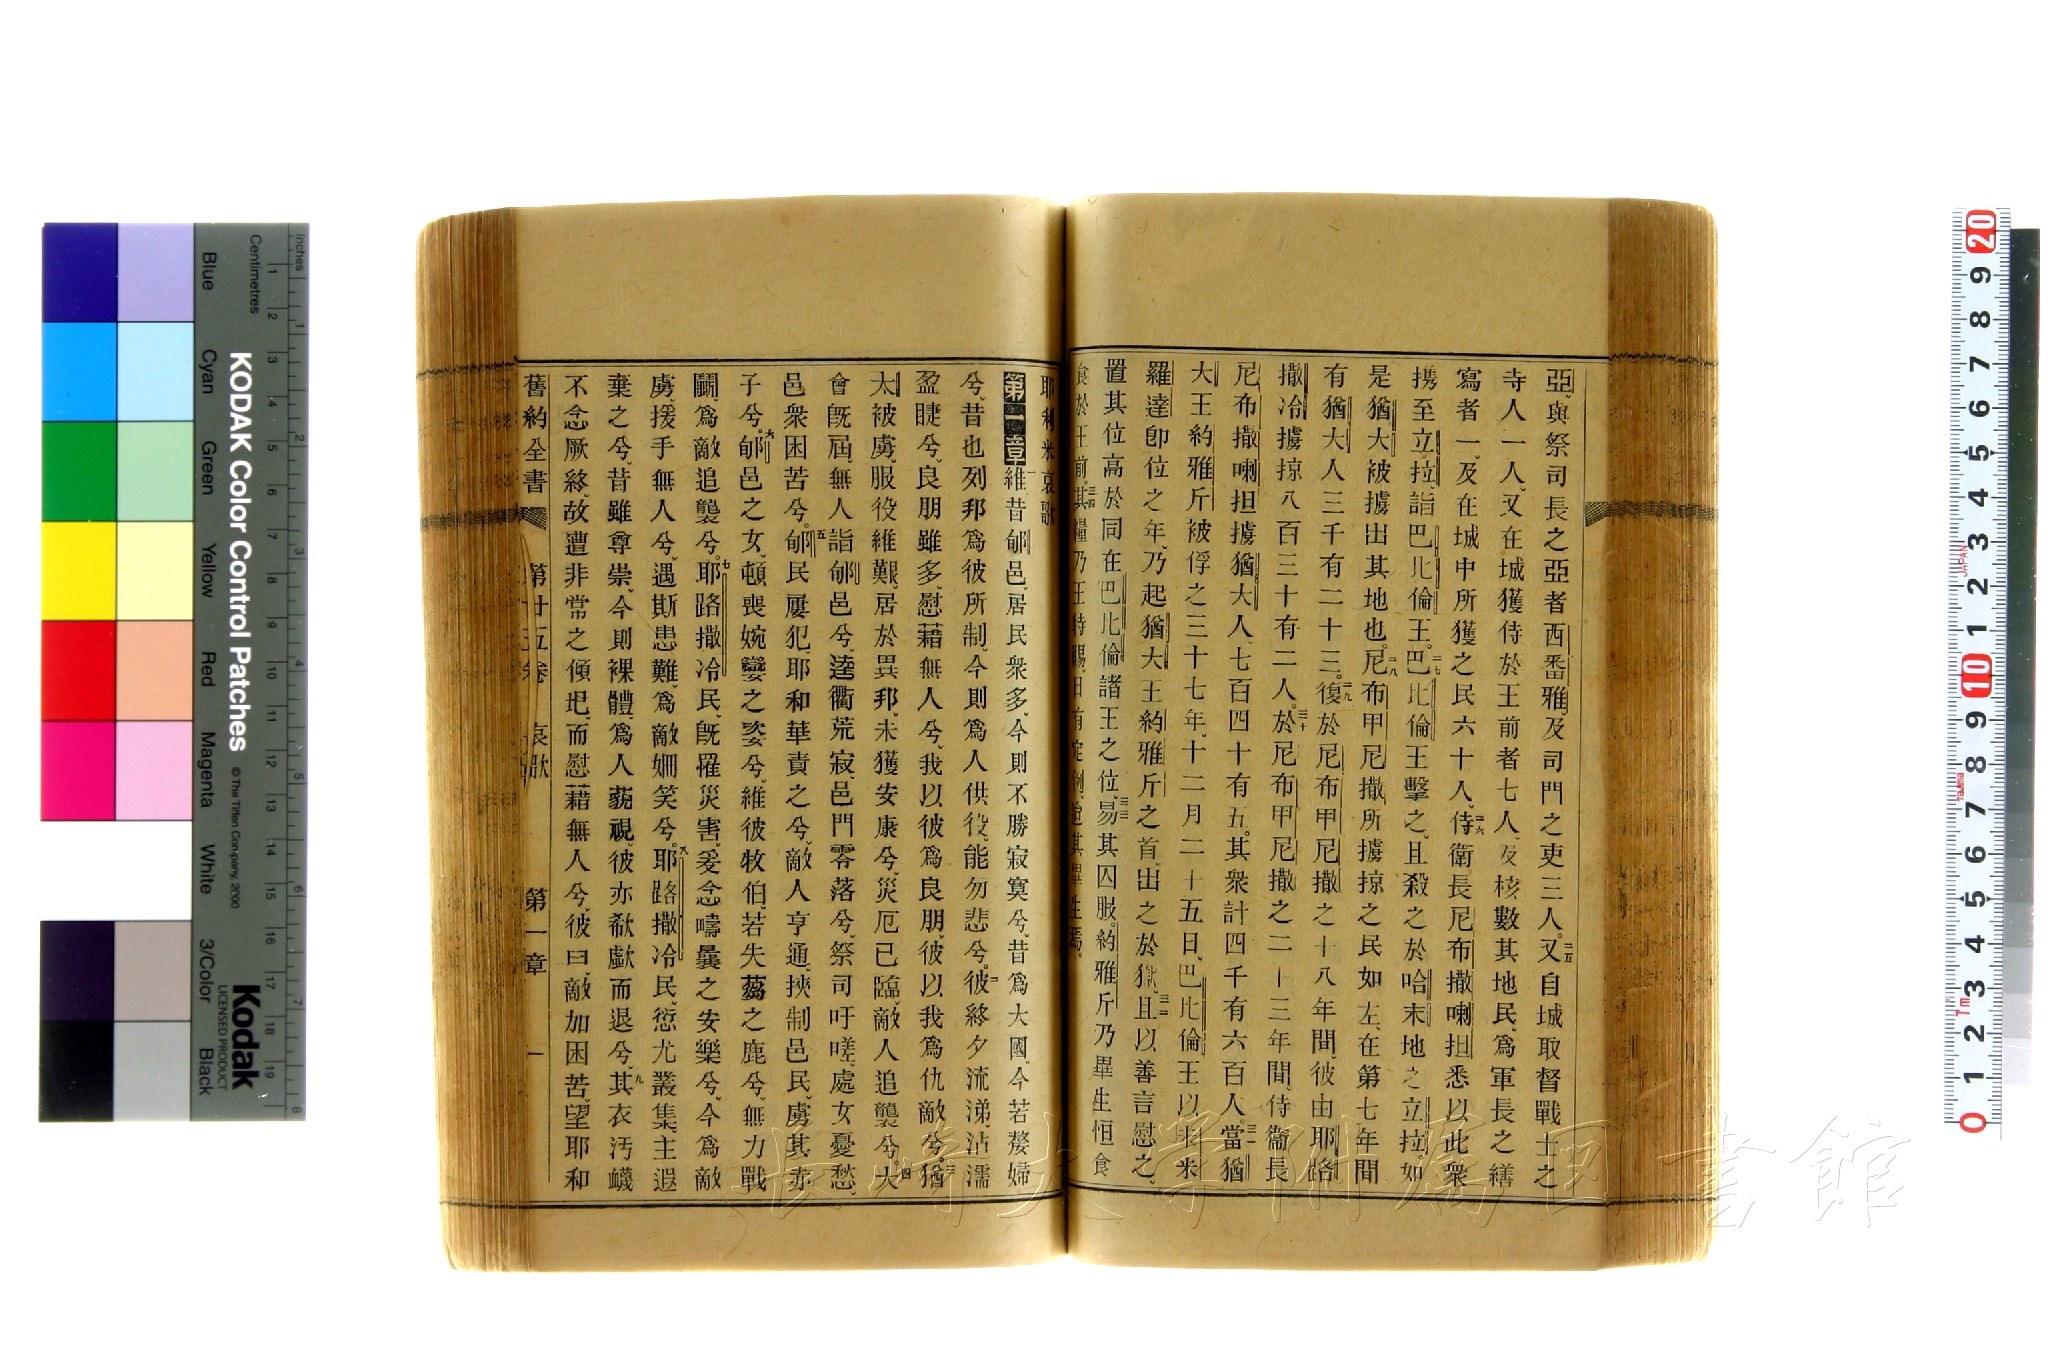 亞、與祭司長之亞者西番雅、及司門之吏三人。二五又自城取督戰士之
寺人一人、又在城獲侍於王前者七人、及核數其地民、爲軍長之繕
寫者一、及在城中所獲之民六十人。二六侍衛長尼布撒喇担悉以此衆
携至立拉、詣巴比倫王。二七巴比倫王擊之、且殺之於哈末地之立拉。如
是猶大被擄出其地也。二八尼布甲尼撒所擄掠之民如左、在第七年間
有猶大人三千有二十三。二九復於尼布甲尼撒之十八年間、彼由耶路
撒冷擄掠八百三十有二人。三十於尼布甲尼撒之二十三年間、侍衞長
尼布撒喇担擄猶大人、七百四十有五。其衆計四千有六百人。三一當猶
大王約雅斤被俘之三十七年、十二月二十五日、巴比倫王以未米
羅達卽位之年、乃起猶大王約雅斤之首、出之於獄、三二且以善言慰之、
置其位高於同在巴比倫諸王之位、三三易其囚服。約雅斤乃畢生恒食
食於王前。三四其糧乃王特賜、日有定例、迨其畢生焉。
耶利米哀歌
第一章 一維昔郇邑、居民衆多、今則不勝寂寞兮、昔爲大國、今若嫠婦
兮、昔也列邦爲彼所制、今則爲人供役、能勿悲兮。二彼終夕流涕、沾濡
盈睫兮、良朋雖多、慰藉無人兮、我以彼爲良朋、彼以我爲仇敵兮。三猶
太被虜、服役維艱、居於異邦、未獲安康兮、災厄已臨、敵人追襲兮。四大
會旣屆、無人詣郇邑兮、逵衢荒寂、邑門零落兮、祭司吁嗟、處女憂愁、
邑衆困苦兮。五郇民屢犯、耶和華責之兮、敵人亨通、挾制邑民、虜其赤
子兮。六郇邑之女、頓喪婉孌之姿兮、維彼牧伯、若失蒭之鹿兮、無力戰
鬭、爲敵追襲兮。七耶路撒冷民、旣罹災害、爰念疇曩之安樂兮、今爲敵
虜、援手無人兮、遇斯患難、爲敵姍笑兮。八耶路撒冷民、愆尤叢集、主遐
棄之兮、昔雖尊崇、今則裸體、爲人藐視、彼亦欷歔而退兮。九其衣汚衊
不念厥終、故遭非常之傾圯、而慰藉無人兮、彼曰、敵加困苦、望耶和
舊約全書 第廿五卷 哀歌 第一章 一
長崎大学附属図書館
KODAK Color Control Patches
© The Tiffen Company, 2000
Kodak
LICENSED PRODUCT
Inches
Centimetres
Blue
Cyan
Green
Yellow
Red
Magenta
White
3/Color
Black
JAPAN